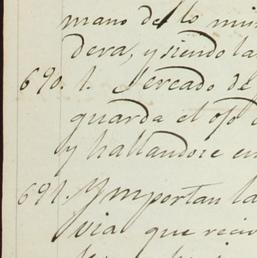 mano de lo mis
dera, y siendo la
690. 1. Sercado de
guarda el ofo
y hallandose en
691. Ymportan la
via que reciv